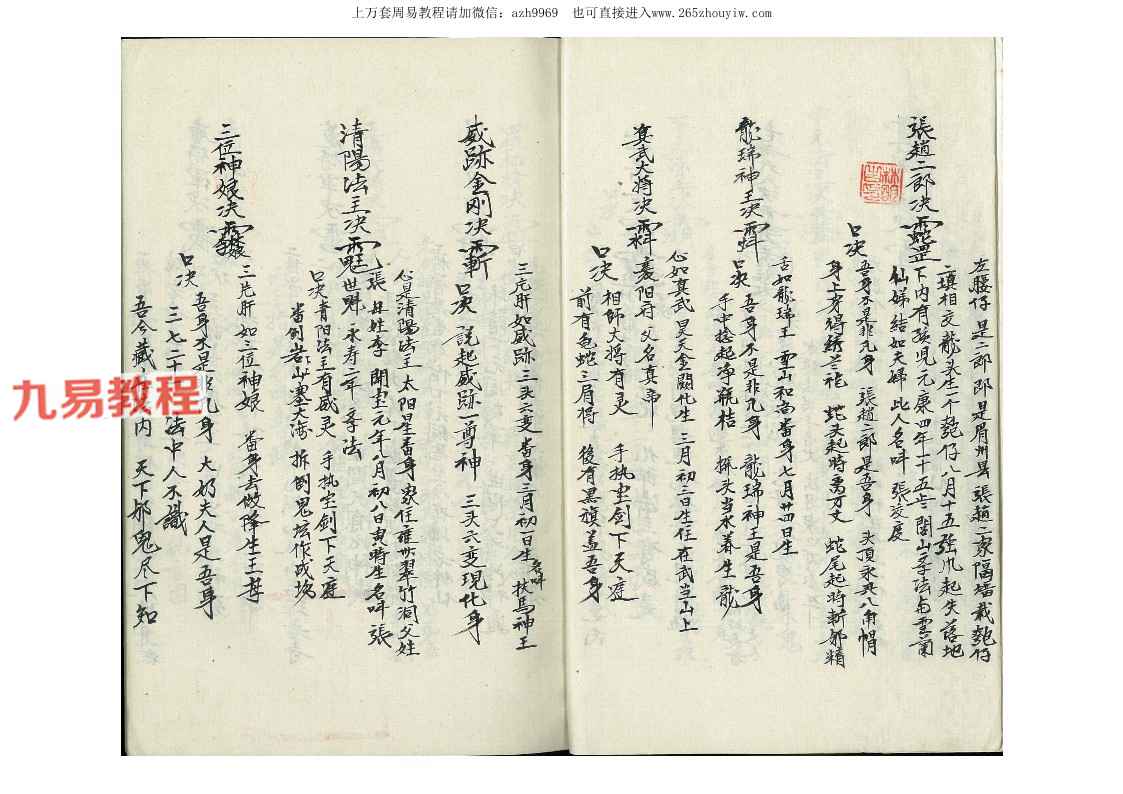 上万套周易教程请加微信：azh9969　也可直接进入www.265zhouyiw.com
張趙二郎决
左腰仔 是二郎 郎是眉州县 張趙二家隔墙栽匏仔
填相交龍 生一个匏仔八月十五強爪起失落地
下内有孩児元康四年十五 閭山学法与雲蘭
仙婦結如夫婦 此人名叫 張凌度
口决
吾身不是非凡身 張趙二郎是吾身 头頂永共八角帽
身上穿得綉兰袍 蛇头起時萬万丈 蛇尾起時斬邪精
龍瑞神王决
舌如龍瑞王 雪山和尚番身七月廿四日生
口决 吾身不是非凡身 龍瑞神王是吾身
手中捻起净瓶桔 探头当水养生龍
真武大将决
心如真武 昊天金闕化生 三月初三日生住在武当山上
襄阳府 父名真帝
口决 相師大将有灵 手执宝剑下天庭
前有龟蛇二眉将 後有黑旗盖吾身
威跡金剛决
三庀肝如威跡 三头六变番身三月初一日生 名叫 扶馬神王
口决 説起威跡一尊神 三头六变現化身
清陽法主决
心是清陽法主太阳星番身 家住雍州翠竹洞父姓
張 母姓李 開宝元年八月初八日寅時生名叫 張
世魁 永寿二年 学法
口决 青阳法主有威灵 手执宝剑下天庭
番倒岩山塞大海 拆倒鬼坛作战场
三位神娘决
三庀肝 如三位神娘 番身去做降生王母
口决 吾身不是非凡身 大奶夫人是吾身
三七二十一法中人不識
吾今藏 内 天下邪鬼尽下知
九易教程